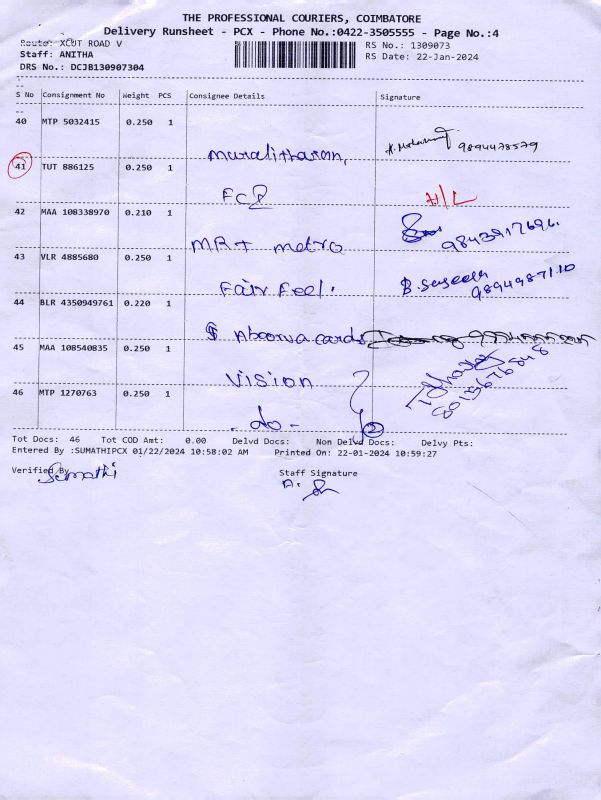 THE PROFESSIONAL COURIERS, COIMBATORE
Delivery Runsheet - PCX - Phone No.:0422-3505555 - Page No.:4
Route: XCUT ROAD V
RS No.: 1309073
Staff: ANITHA
RS Date: 22-Jan-2024
DRS No.: DCJB130907304
S No Consignment No Weight PCS Consignee Details Signature
40 MTP 5032415 0.250 1
muralitharan, 9894478579
41 TUT 886125 0.250 1
FCI H/L
42 MAA 108338970 0.210 1
MRT metro 9843917696.
43 VLR 4885680 0.250 1
Fair Feel.
44 BLR 4350949761 0.220 1
cards
45 MAA 108540835 0.250 1
Vision
46 MTP 1270763 0.250 1
- do - 2
Tot Docs: 46 Tot COD Amt: 0.00 Delvd Docs: Non Delvd Docs: Delvy Pts:
Entered By :SUMATHIPCX 01/22/2024 10:58:02 AM Printed On: 22-01-2024 10:59:27
Verified By Staff Signature
Sumathi